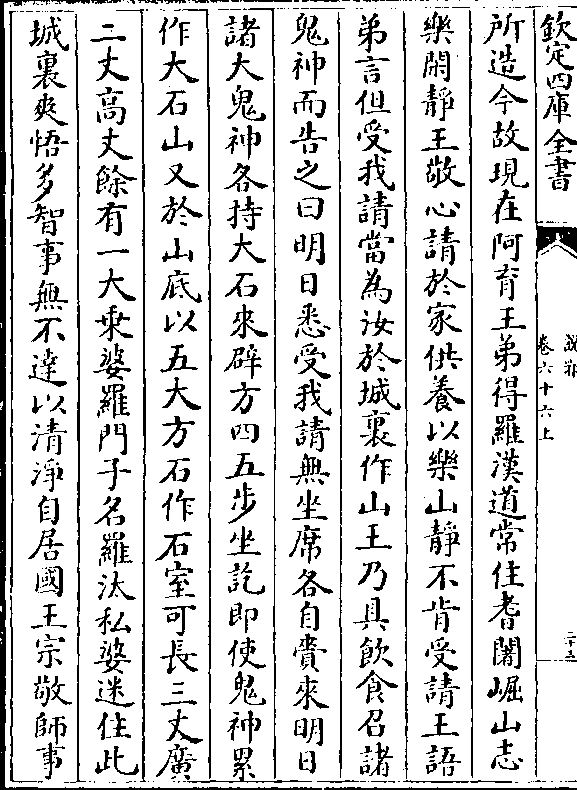 欽定四庫全書
說郛
卷六十六上
二十五
所造今故現在阿育王弟得羅漢道常住耆闍崛山志
樂閑靜王敬心請於家供養以樂山靜不肯受請王語
弟言但受我請當為汝於城裏作山王乃具飲食召諸
鬼神而告之曰明日悉受我請無坐席各自賫來明日
諸大鬼神各持大石來辟方四五步坐訖即使鬼神累
作大石山又於山底以五大方石作石室可長三丈廣
二丈高丈餘有一大乗婆羅門子名羅汰私婆迷住此
城裏爽悟多智事無不達以清淨自居國王宗敬師事